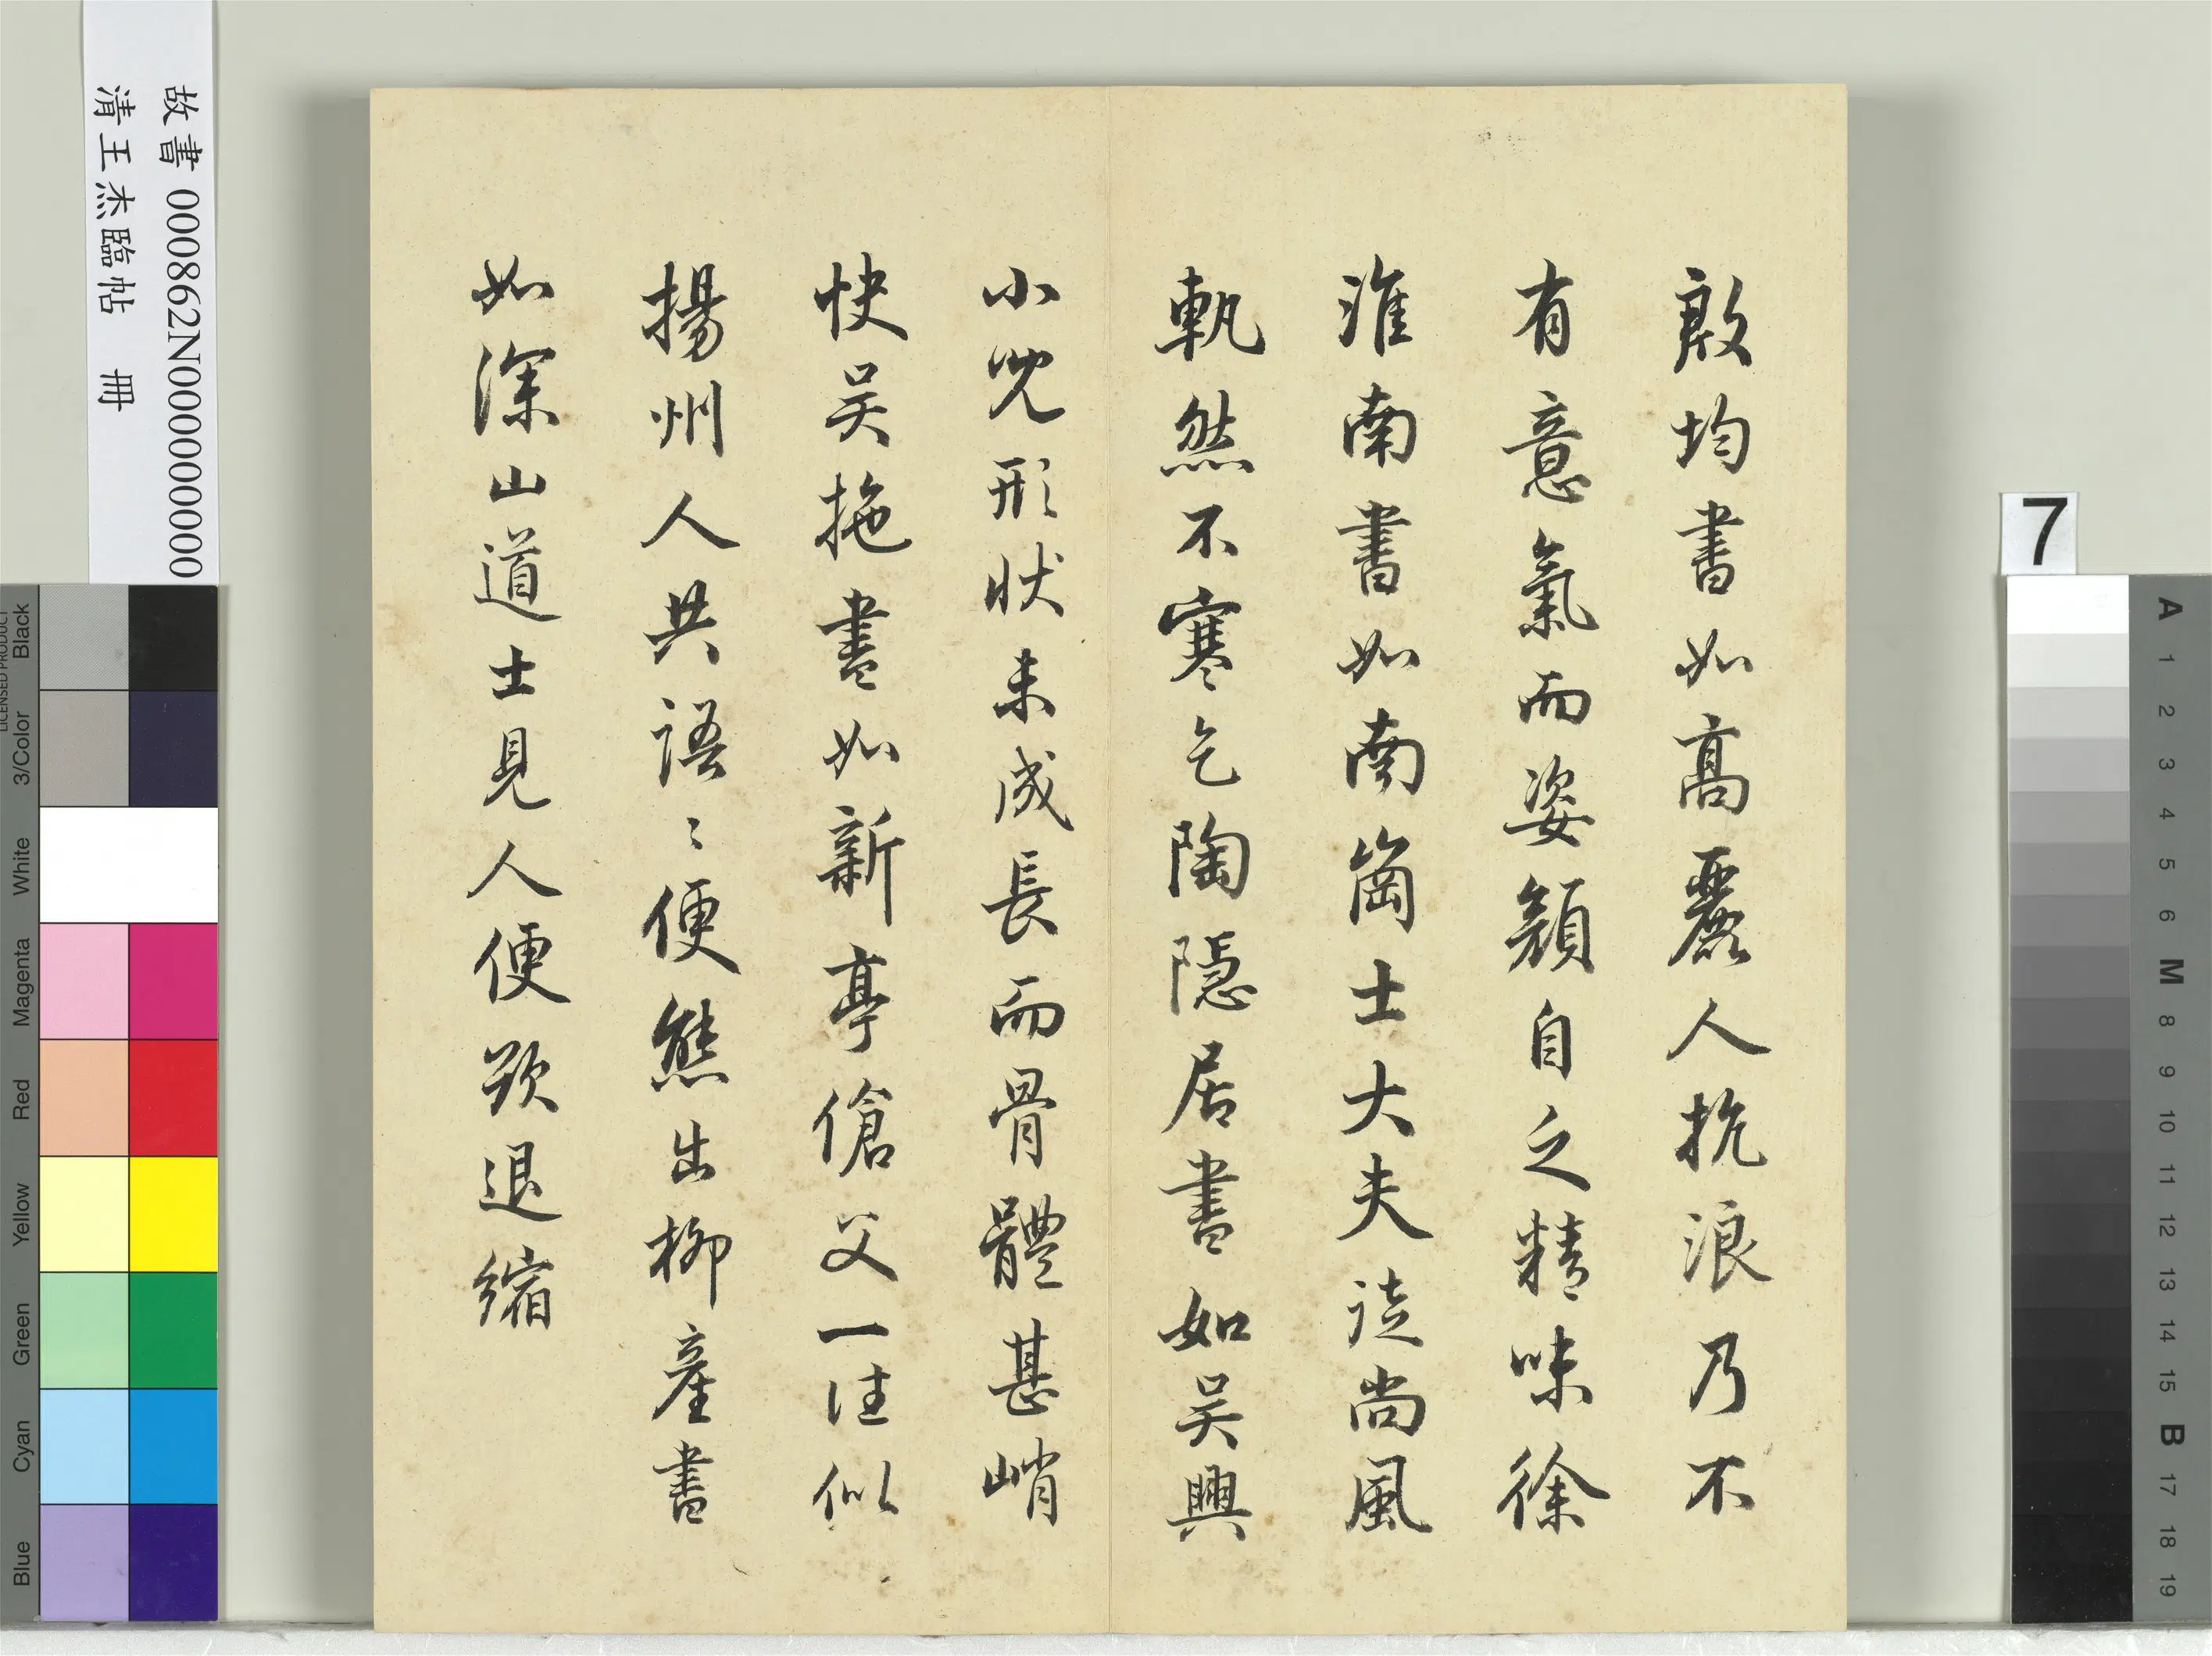 殷均書如高麗人抗浪乃不
有意氣而姿顏自乏精味徐
淮南書如南崗士大夫徒尚風
軌然不寒乞陶隱居書如吳興
小兒形狀未成長而骨體甚峭
快吳拖書如新亭傖父一往似
揚州人共語〻便態出柳產書
如深山道士見人便欲退縮
故書 000862N000000000
清王杰臨帖 冊
LICENSED PRODUCT
Black
3/Color
White
Magenta
Red
Yellow
Green
Cyan
Blue
7
A 1 2 3 4 5 6 M 8 9 10 11 12 13 14 15 B 17 18 19